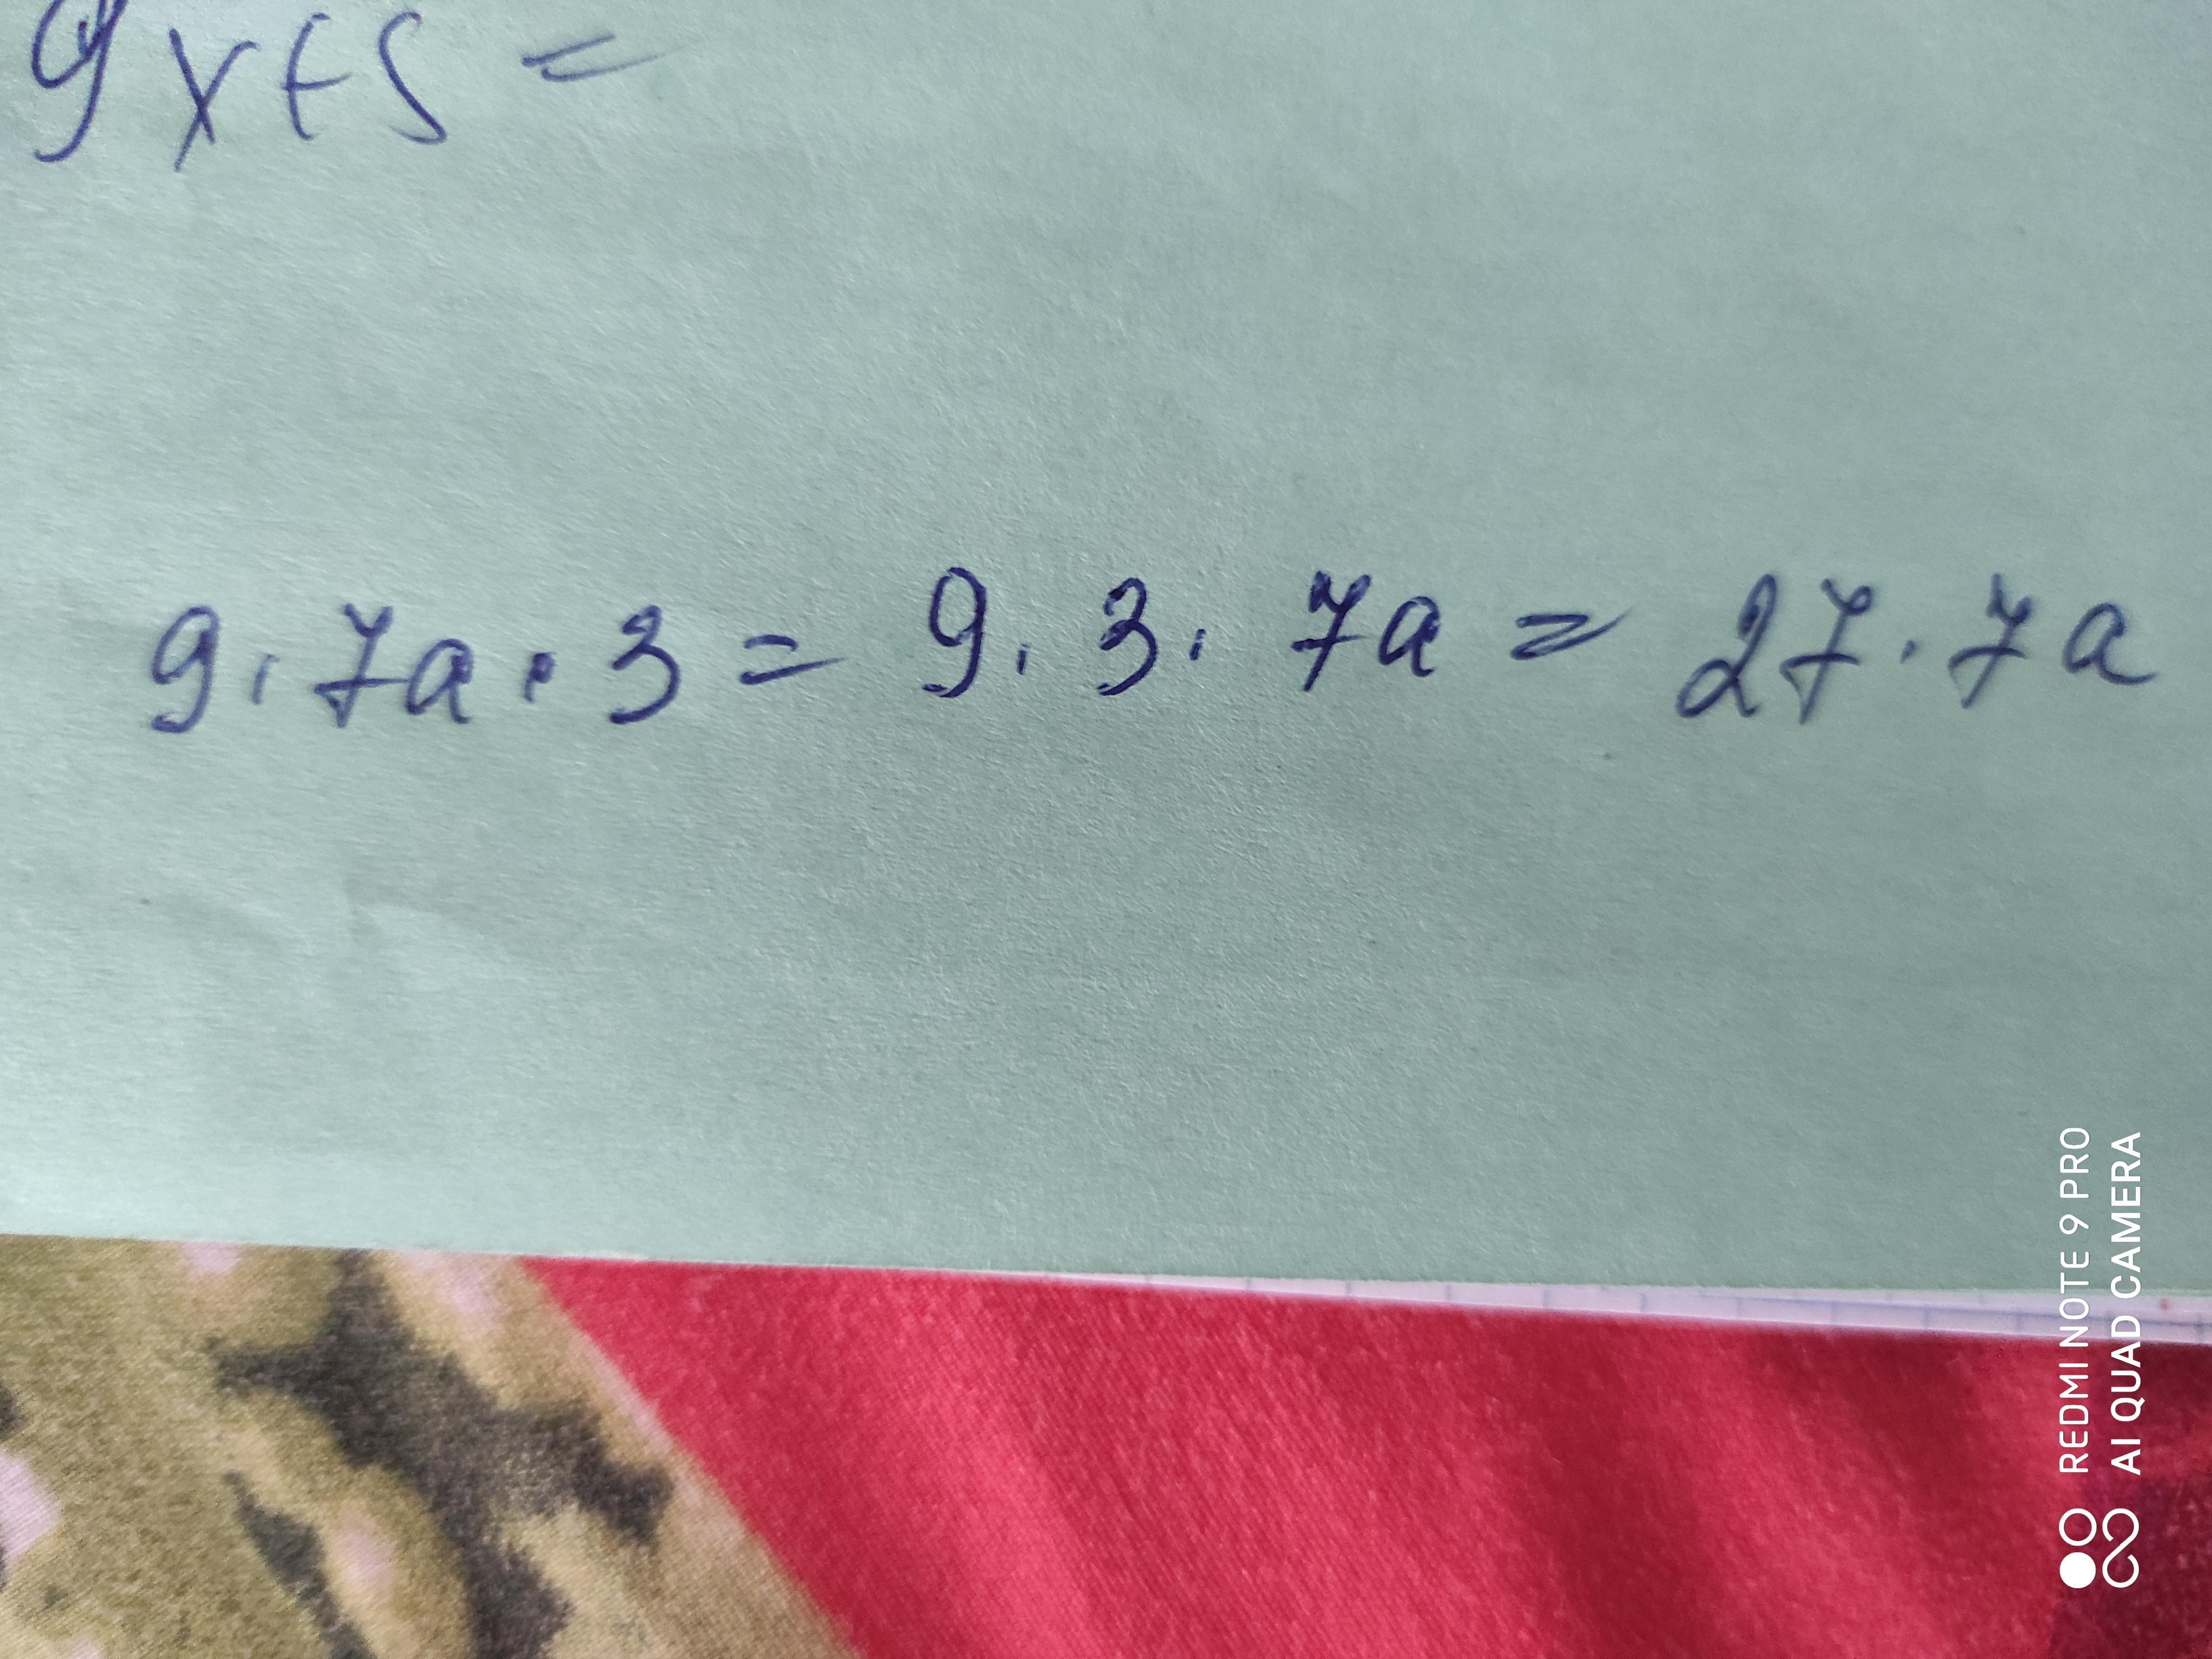 9x+5=
9·7a·3=9·3·7a=27·7a
REDMI NOTE 9 PRO
AI QUAD CAMERA